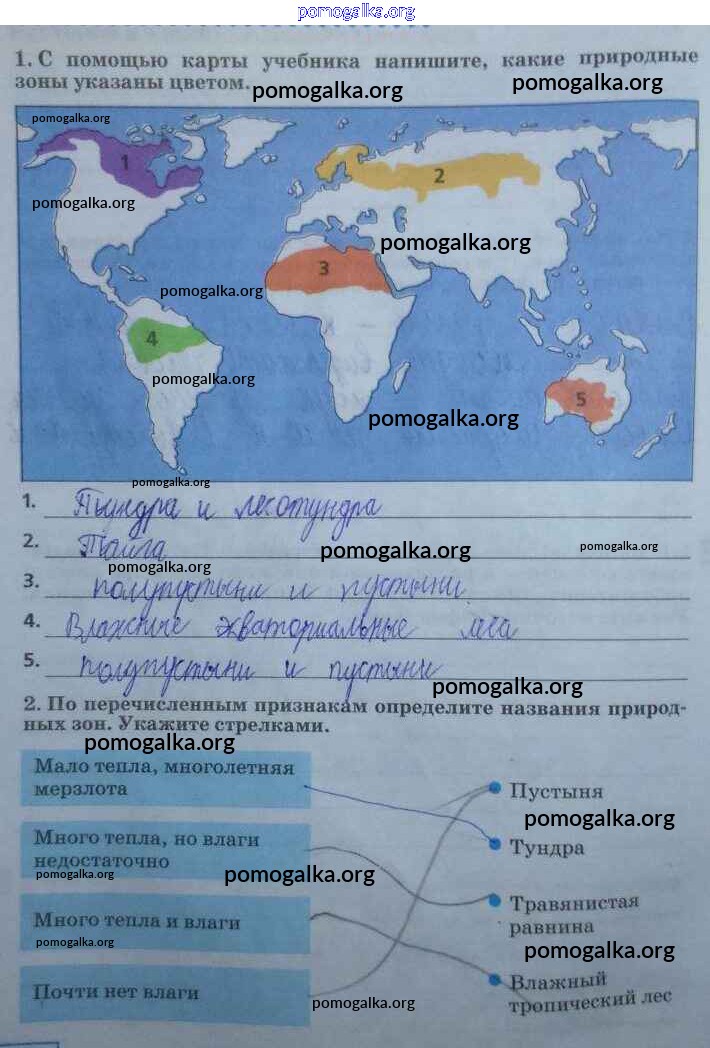 pomogalka.org
1. С помощью карты учебника напишите, какие природные
зоны указаны цветом.
pomogalka.org
pomogalka.org
pomogalka.org
1
2
pomogalka.org
pomogalka.org
3
pomogalka.org
4
pomogalka.org
5
pomogalka.org
pomogalka.org
1. Тундра и лесотундра
2. Тайга
pomogalka.org
pomogalka.org
pomogalka.org
3. полупустыни и пустыни
4. Влажные экваториальные леса
5. полупустыни и пустыни
pomogalka.org
2. По перечисленным признакам определите названия природ-
ных зон. Укажите стрелками.
pomogalka.org
Мало тепла, многолетняя
мерзлота
Пустыня
pomogalka.org
Много тепла, но влаги
недостаточно
Тундра
pomogalka.org
pomogalka.org
Много тепла и влаги
Травянистая
равнина
pomogalka.org
pomogalka.org
Почти нет влаги
Влажный
тропический лес
pomogalka.org